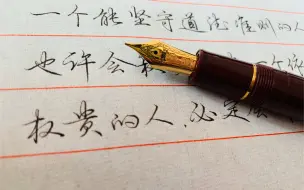 一个能坚守道德准则的人
也许会
权贵的人、必定